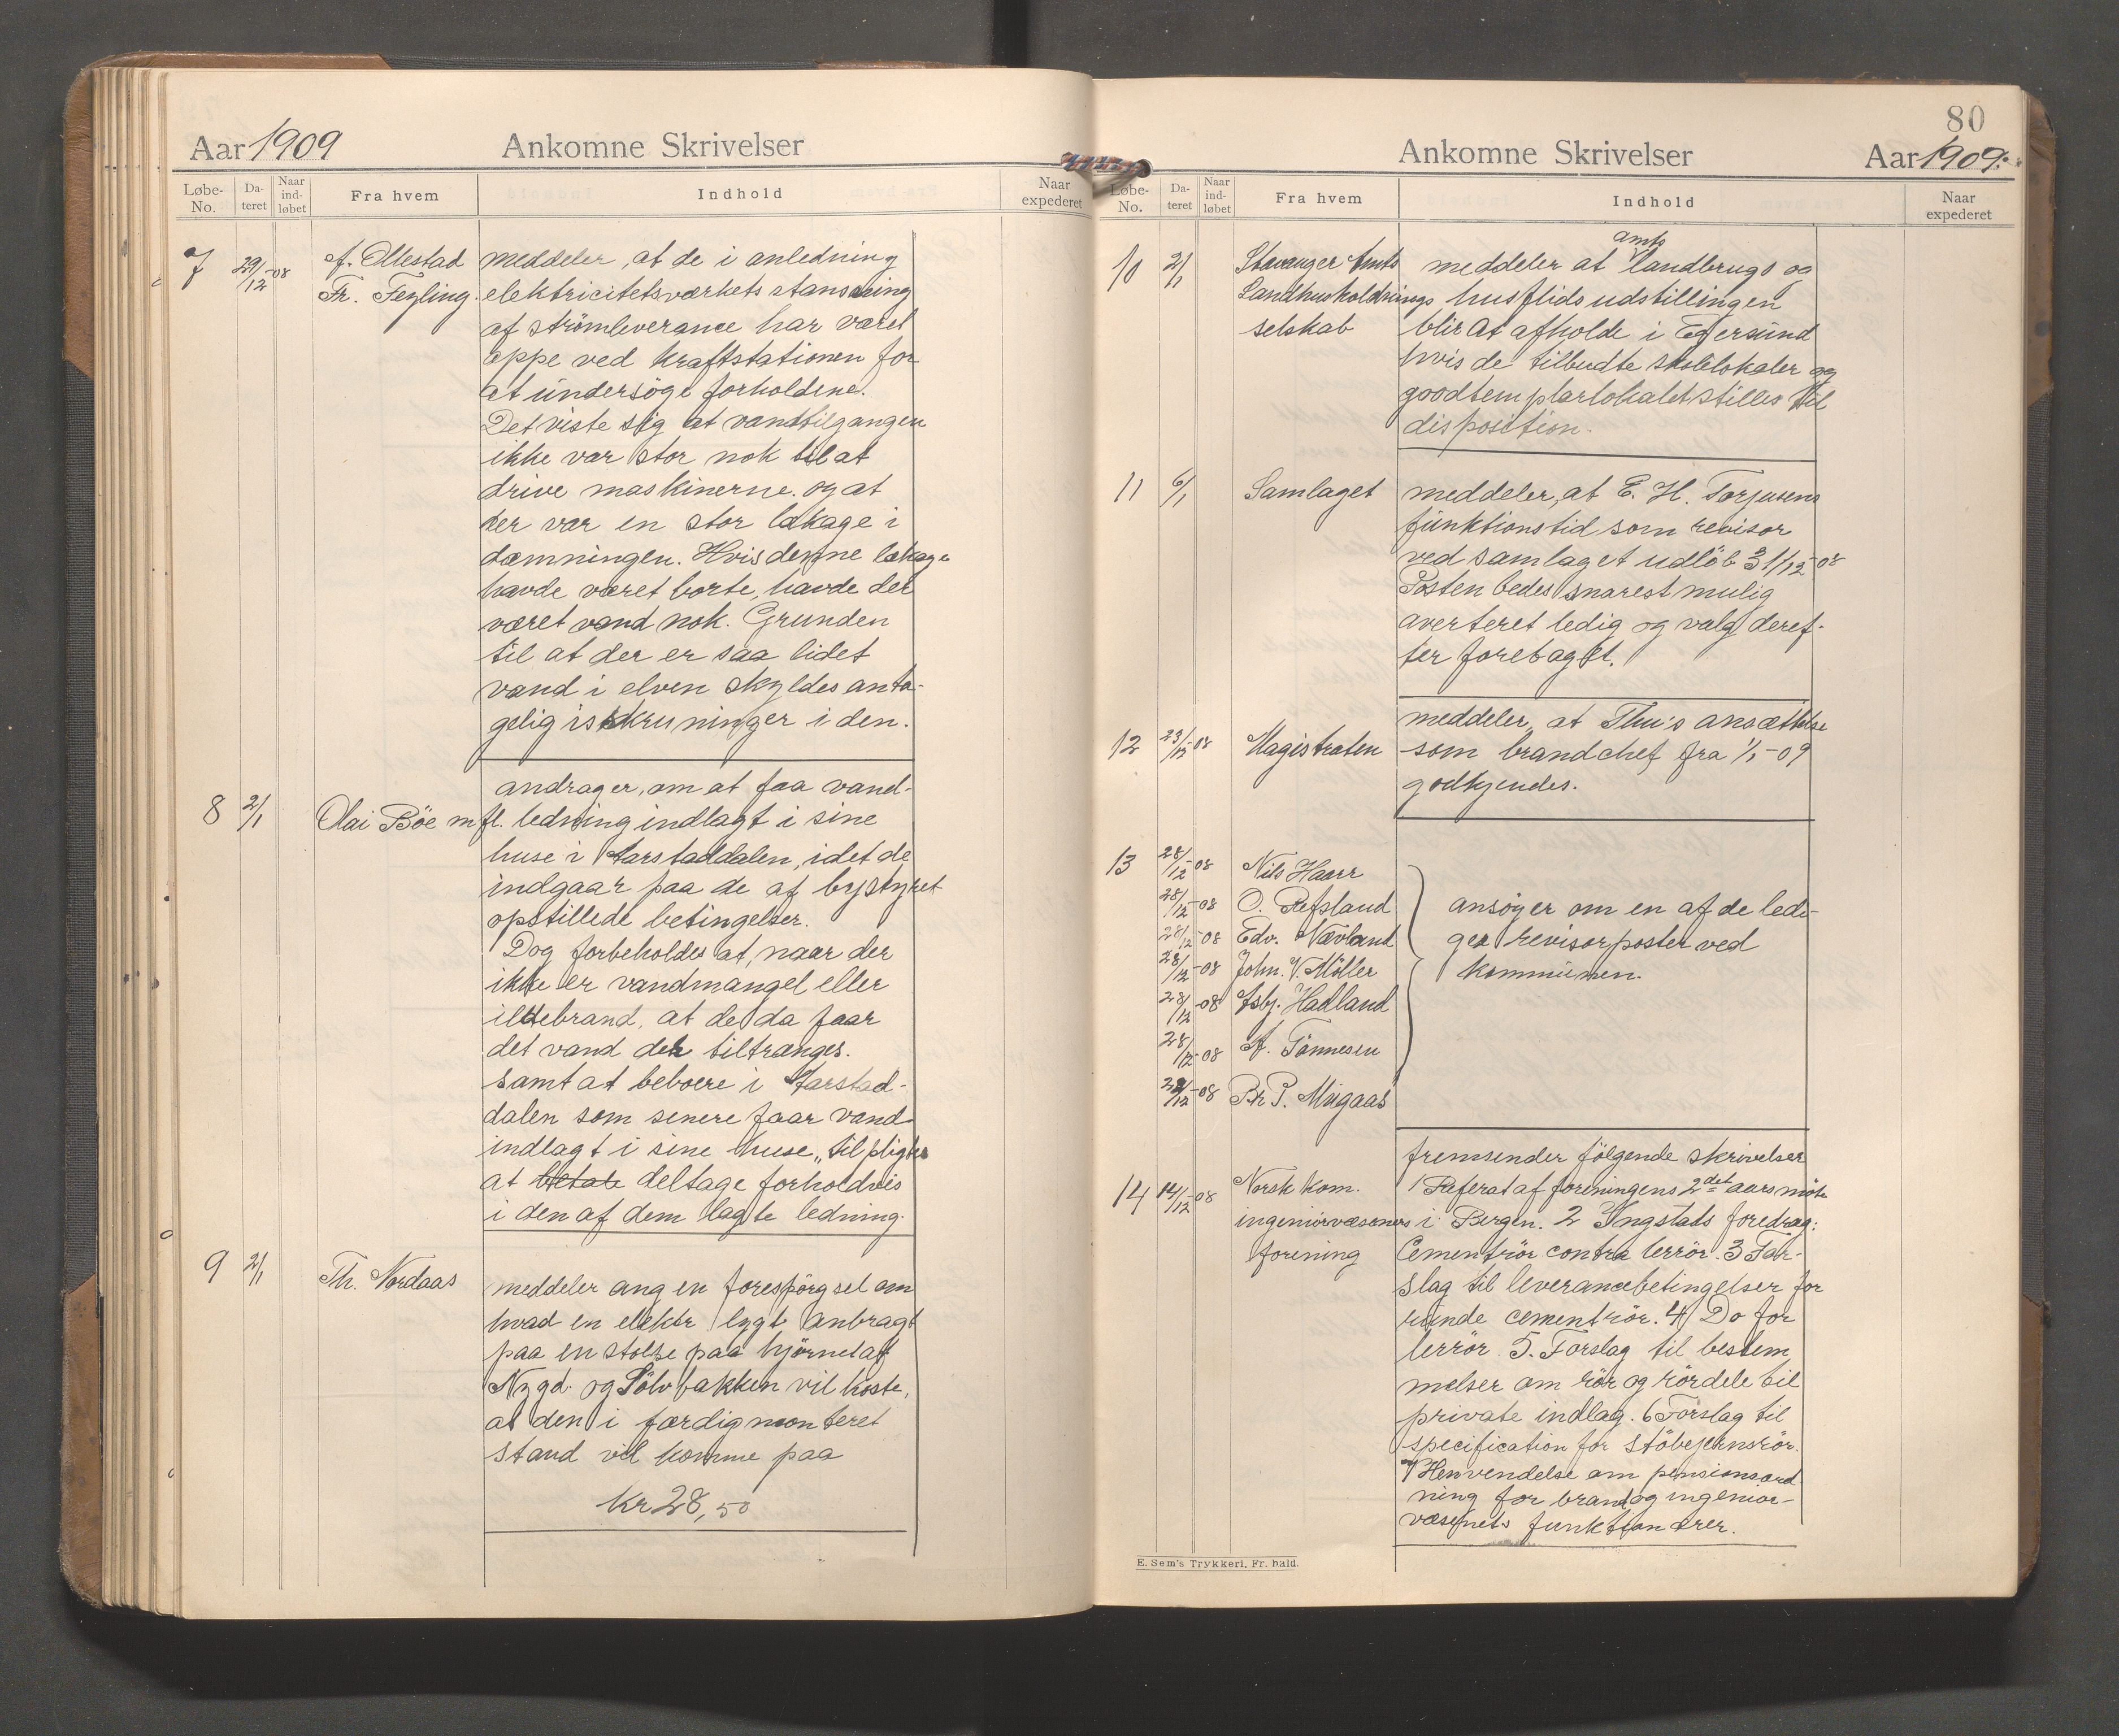 Aar 1909
Ankomne Skrivelser
Løbe-No.
Dateret
Naar indløbet
Fra hvem
Indhold
Naar expederet
7
29/12-08
A. Ollestad
Fr. Feyling.
meddeler, at de i anledning
elektricitetsværkets stansning
af strömleverance har været
oppe ved kraftstationen for
at undersöge forholdene.
Det viste sig at vandtilgangen
ikke var stor nok til at
drive maskinerne. og at
der var en stor lækage i
dæmningen. Hvis denne lækage
havde været borte, havde der
været vand nok. Grunden
til at der er saa lidet
vand i elven skyldes anta-
gelig isskruninger i den.
8
2/1
Olai Böe m fl.
andrager, om at faa vand-
ledning indlagt i sine
huse i Aarstaddalen, idet de
indgaar paa de af bystyret
opstillede betingelser.
Dog forbeholdes at, naar der
ikke er vandmangel eller
ildebrand, at de da faar
det vand der tiltrænges.
samt at beboere i Aarstad-
dalen som senere faar vand
indlagt i sine huse, tilpligtes
at betale deltage forholdvis
i den af dem lagte ledning.
9
2/1
Th. Nordaas
meddeler ang en forespörgsel om
hvad en elektr lygt anbragt
paa en stolpe paa hjörnet af
Nygd. og Sölvbakken vil koste,
at den i færdigmonteret
stand vil komme paa
Kr 28,50
80
Ankomne Skrivelser
Aar 1909.
Løbe-No.
Dateret
Naar indløbet
Fra hvem
Indhold
Naar expederet
10
2/1
Stavanger Amts
Landhusholdnings
selskab
amts
meddeler at landbrugs og
husflidsudstillingen
blir at afholde i Egersund
hvis de tilbudte skolelokaler og
goodtemplarlokalet stilles til
disposition.
11
6/1
Samlaget
meddeler, at E. H. Torjusens
funktionstid som revisor
ved samlaget udlöb 31/12-08
Posten bedes snarest mulig
averteret ledig og valg deref-
ter foretaget.
12
23/12-08
Magistraten
meddeler, at Thu's ansættelse
som brandchef fra 1/1-09
godkjendes.
13
28/12-08 Nils Haarr
28/12-08 O. Refsland
28/12-08 Edv. Nævland
28/12-08 John. V. Möller
28/12-08 Asbj. Hadland
28/12-08 A. Tönnesen
28/12-08 Br P. Mügaas
ansöger om en af de ledi-
ge revisorposter ved
kommunen.
14
14/12-08
Norsk kom.
ingeniörvæseners
forening
fremsender fölgende skrivelser
1 Referat af foreningens 2det aarsmöte
i Bergen. 2 Yngstads foredrag:
Cementrör contra lerrör. 3 For-
slag til leverancebetingelser for
runde cementrör. 4 Do for
lerrör 5. Forslag til bestem
melser om rör og rördele til
private indlag. 6 Forslag til
specification for stöbejernsrör.
7 Henvendelse om pensionsord
ning for brand og ingeniör-
væsenets funktionærer.
E. Sem's Trykkeri, Fr. hald.